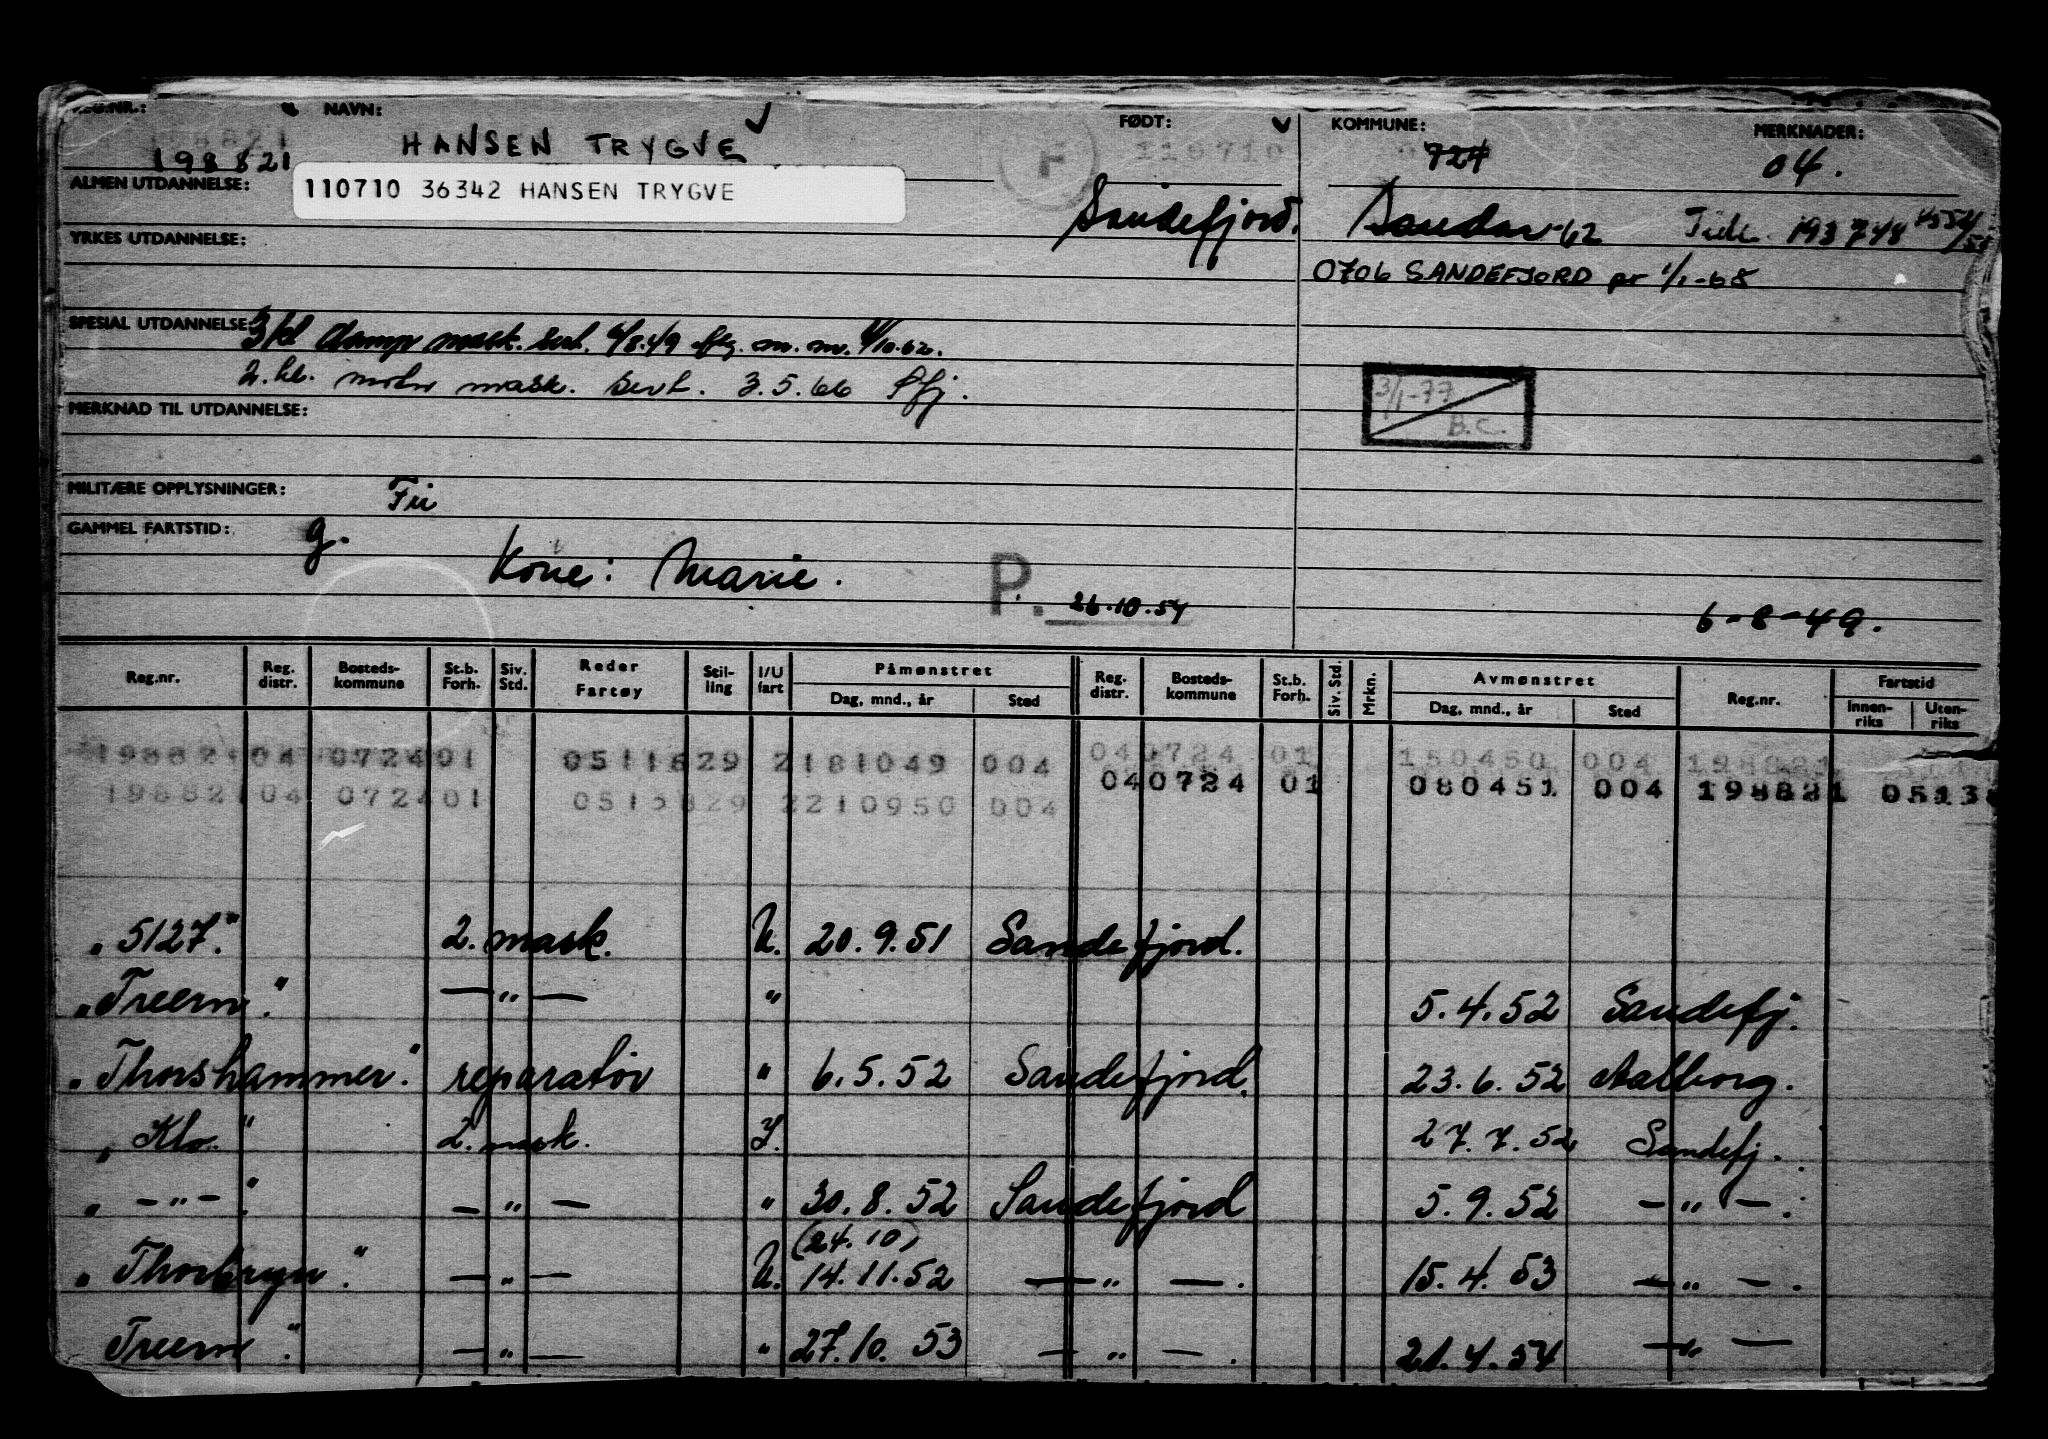 REG.NR.: NAVN: FØDT: KOMMUNE: MERKNADER:
198821 HANSEN TRYGVE F 110710 724 04.
ALMEN UTDANNELSE: 110710 36342 HANSEN TRYGVE
Sandefjord. Sandar 62 193744
YRKES UTDANNELSE:
0706 SANDEFJORD pr 1/1-68
SPESIAL UTDANNELSE: 3 kl damp mask. sert. 6/8.49
2. kl. motor mask. sert. 3.5.66 Sfj.
3/1-77
B.C.
MERKNAD TIL UTDANNELSE:
MILITÆRE OPPLYSNINGER: Fri
GAMMEL FARTSTID: g.
Kone: Marie. P. 26.10.54
6-8-49.
Reg.nr. Reg. distr. Bosteds- kommune St.b. Forh. Siv. Std. Reder Fartøy Stil- ling I/U fart Påmønstret Dag, mnd., år Sted Reg. distr. Bosteds- kommune St.b. Forh. Siv. Std. Mrkn. Avmønstret Dag, mnd., år Sted Reg.nr. Fartstid Innen- riks Uten- riks
198821 04 0724 01 0511829 2181049 004 040724 01 150450 004 198821
040724 01 080451 004 198821 0513
198821 04 0724 01 0515829 2210950 004
"5127." 2. mask. U. 20.9.51 Sandefjord.
"Treern". — " — " 5.4.52 Sandefj.
"Thorshammer". reparatør " 6.5.52 Sandefjord. 23.6.52 Aalborg.
"Klo" 2. mask. I. 27.7.52 Sandefj.
" — " — ". — " — " 30.8.52 Sandefjord 5.9.52 — " — .
(24.10)
"Thorbryn". — " — U. 14.11.52 — " — . 15.4.53 — " — .
Treern". — " — " 27.10.53 — " — . 21.4.54 — " —